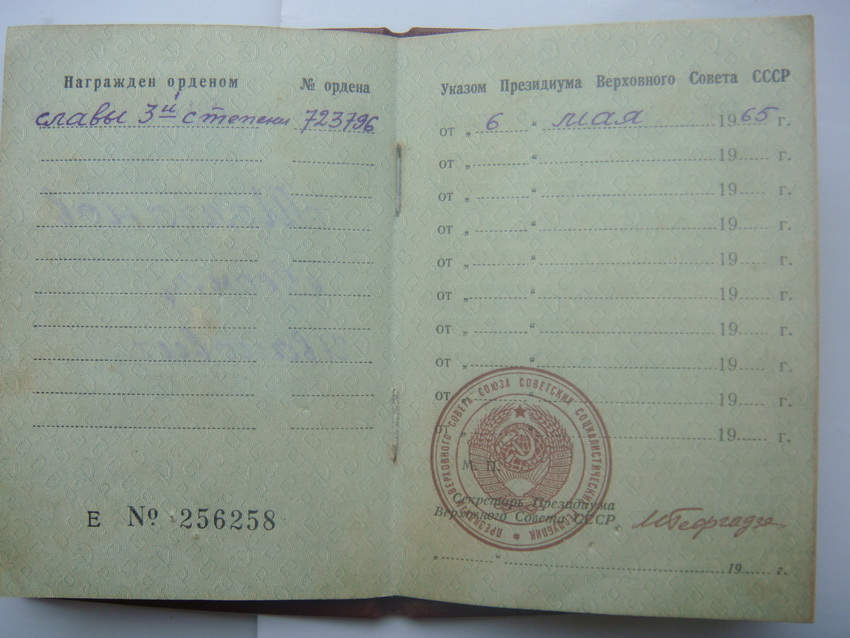 Награжден орденом № ордена
славы 3й степени 723796
Е № 256258
Указом Президиума Верховного Совета СССР
от „ 6 “ мая 1965 г.
от „ “ 19 г.
от „ “ 19 г.
от „ “ 19 г.
от „ “ 19 г.
от „ “ 19 г.
от „ “ 19 г.
от „ “ 19 г.
от „ “ 19 г.
от „ “ 19 г.
ПРЕЗИДИУМ ВЕРХОВНОГО СОВЕТА СОЮЗА СОВЕТСКИХ СОЦИАЛИСТИЧЕСКИХ РЕСПУБЛИК
М. П.
Секретарь Президиума
Верховного Совета СССР
МГеоргадзе
„ “ 19 г.